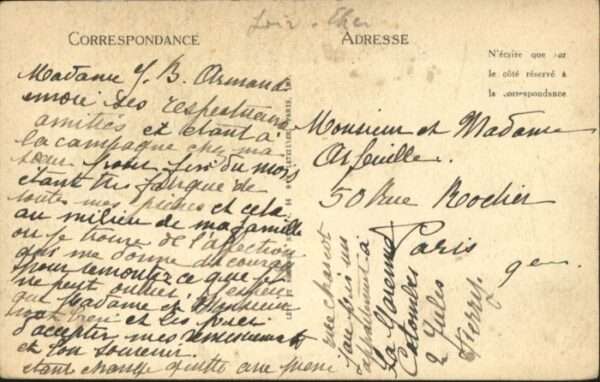 Loir-Cher
CORRESPONDANCE
ADRESSE
N'écrire que sur
le côté réservé à
la correspondance
Madame J. B. Armand
envoie ses respectueuses
amitiés et étant à
la campagne chez ma
sœur pour fin du mois
étant très fatiguée de
toutes mes peines et cela
au milieu de ma famille
où je trouve de l'affection
qui me donne du courage
pour remonter ce que je
ne peut oublier
que Madame et Monsieur
vont bien et les prier
d'accepter mes remerciements
et bon souvenir
étant changé
Monsieur et Madame
Arfeuille.
50 Rue Rocher
Paris
me
appartement à
La Garenne
Colombes
2 Jules
Ferry